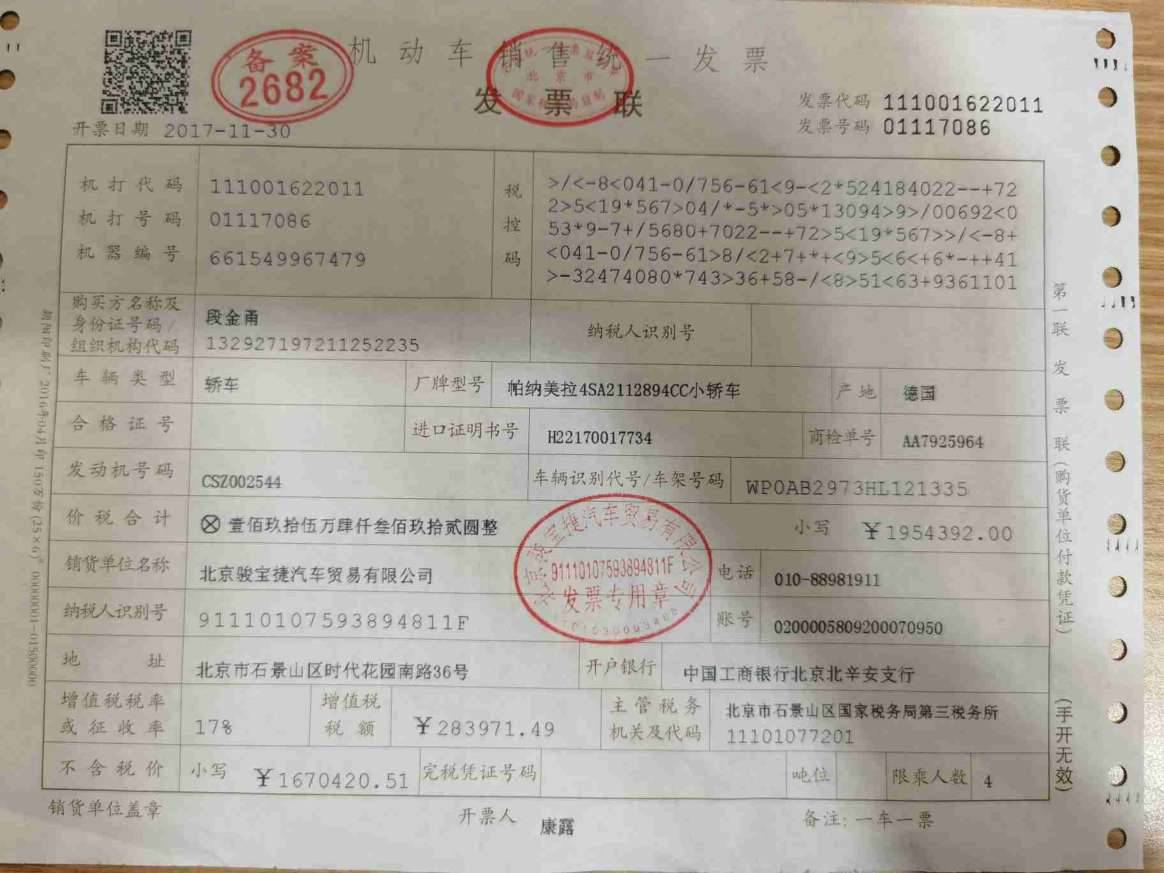 备案
2682
机动车销售统一发票
发票联
发票代码 111001622011
发票号码 01117086
开票日期 2017-11-30
机打代码 111001622011
机打号码 01117086
机器编号 661549967479
税控码
>/<-8<041-0/756-61<9-<2*524184022--+72
2>5<19*567>04/*-5*>05*13094>9>/00692<0
53*9-7+/5680+7022--+72>5<19*567>>/<-8+
<041-0/756-61>8/<2+7+*+<9>5<6<+6*-++41
>-32474080*743>36+58-/<8>51<63+9361101
购买方名称及
身份证号码/
组织机构代码
段金甬
132927197211252235
纳税人识别号
车辆类型 轿车 厂牌型号 帕纳美拉4SA2112894CC小轿车 产地 德国
合格证号 进口证明书号 H22170017734 商检单号 AA7925964
发动机号码 CSZ002544 车辆识别代号/车架号码 WP0AB2973HL121335
价税合计 ⊗壹佰玖拾伍万肆仟叁佰玖拾贰圆整 小写 ¥1954392.00
销货单位名称 北京骏宝捷汽车贸易有限公司 电话 010-88981911
纳税人识别号 91110107593894811F 账号 0200005809200070950
地址 北京市石景山区时代花园南路36号 开户银行 中国工商银行北京北辛安支行
增值税税率
或征收率
17%
增值税
税额
¥283971.49
主管税务
机关及代码
北京市石景山区国家税务局第三税务所
11101077201
不含税价 小写 ¥1670420.51 完税凭证号码 吨位 限乘人数 4
销货单位盖章 开票人 康露 备注:一车一票
北京骏宝捷汽车贸易有限公司
91110107593894811F
发票专用章
第一联 发票联(购货单位付款凭证)
(手开无效)